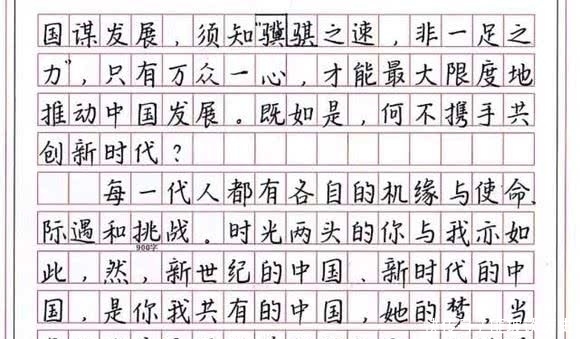 国谋发展，须知“骥骐之速，非一足之
力”，只有万众一心，才能最大限度地
推动中国发展。既如是，何不携手共
创新时代？
每一代人都有各自的机缘与使命、
际遇和挑战。时光两头的你与我亦如
900字
此，然，新世纪的中国、新时代的中
国，是你我共有的中国，她的梦，当